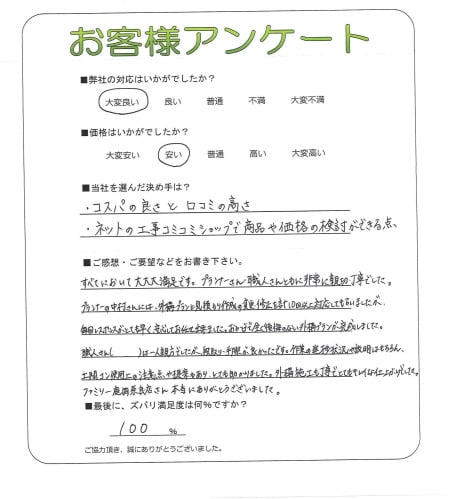 お客様アンケート
■弊社の対応はいかがでしたか?
大変良い 良い 普通 不満 大変不満
■価格はいかがでしたか?
大変安い 安い 普通 高い 大変高い
■当社を選んだ決め手は?
・コスパの良さと口コミの高さ
・ネットの工事コミコミショップで商品や価格の検討ができる点。
■ご感想・ご要望などをお書き下さい。
すべてにおいて大大大満足です。プランナーさん・職人さんともに非常に親切丁寧でした。
プランナーの中村さんには、外構プランと見積もり作成の 修正を計10回以上対応してもらいましたが、
毎回レスポンスがとても早く安心してお任せ出来ました。おかげで全く後悔のない外構プランが完成しました。
職人さん( )は一人親方でしたが、段取り・手際が良かったです。作業の進捗状況や説明はもちろん、
土間コン使用上の注意点や提案もあり、とても助かりました。外構施工も丁寧でとてもきれいな仕上がりでした。
ファミリー庭 店さん本当にありがとうございました。
■最後に、ズバリ満足度は何%ですか?
100 %
ご協力頂き、誠にありがとうございました。